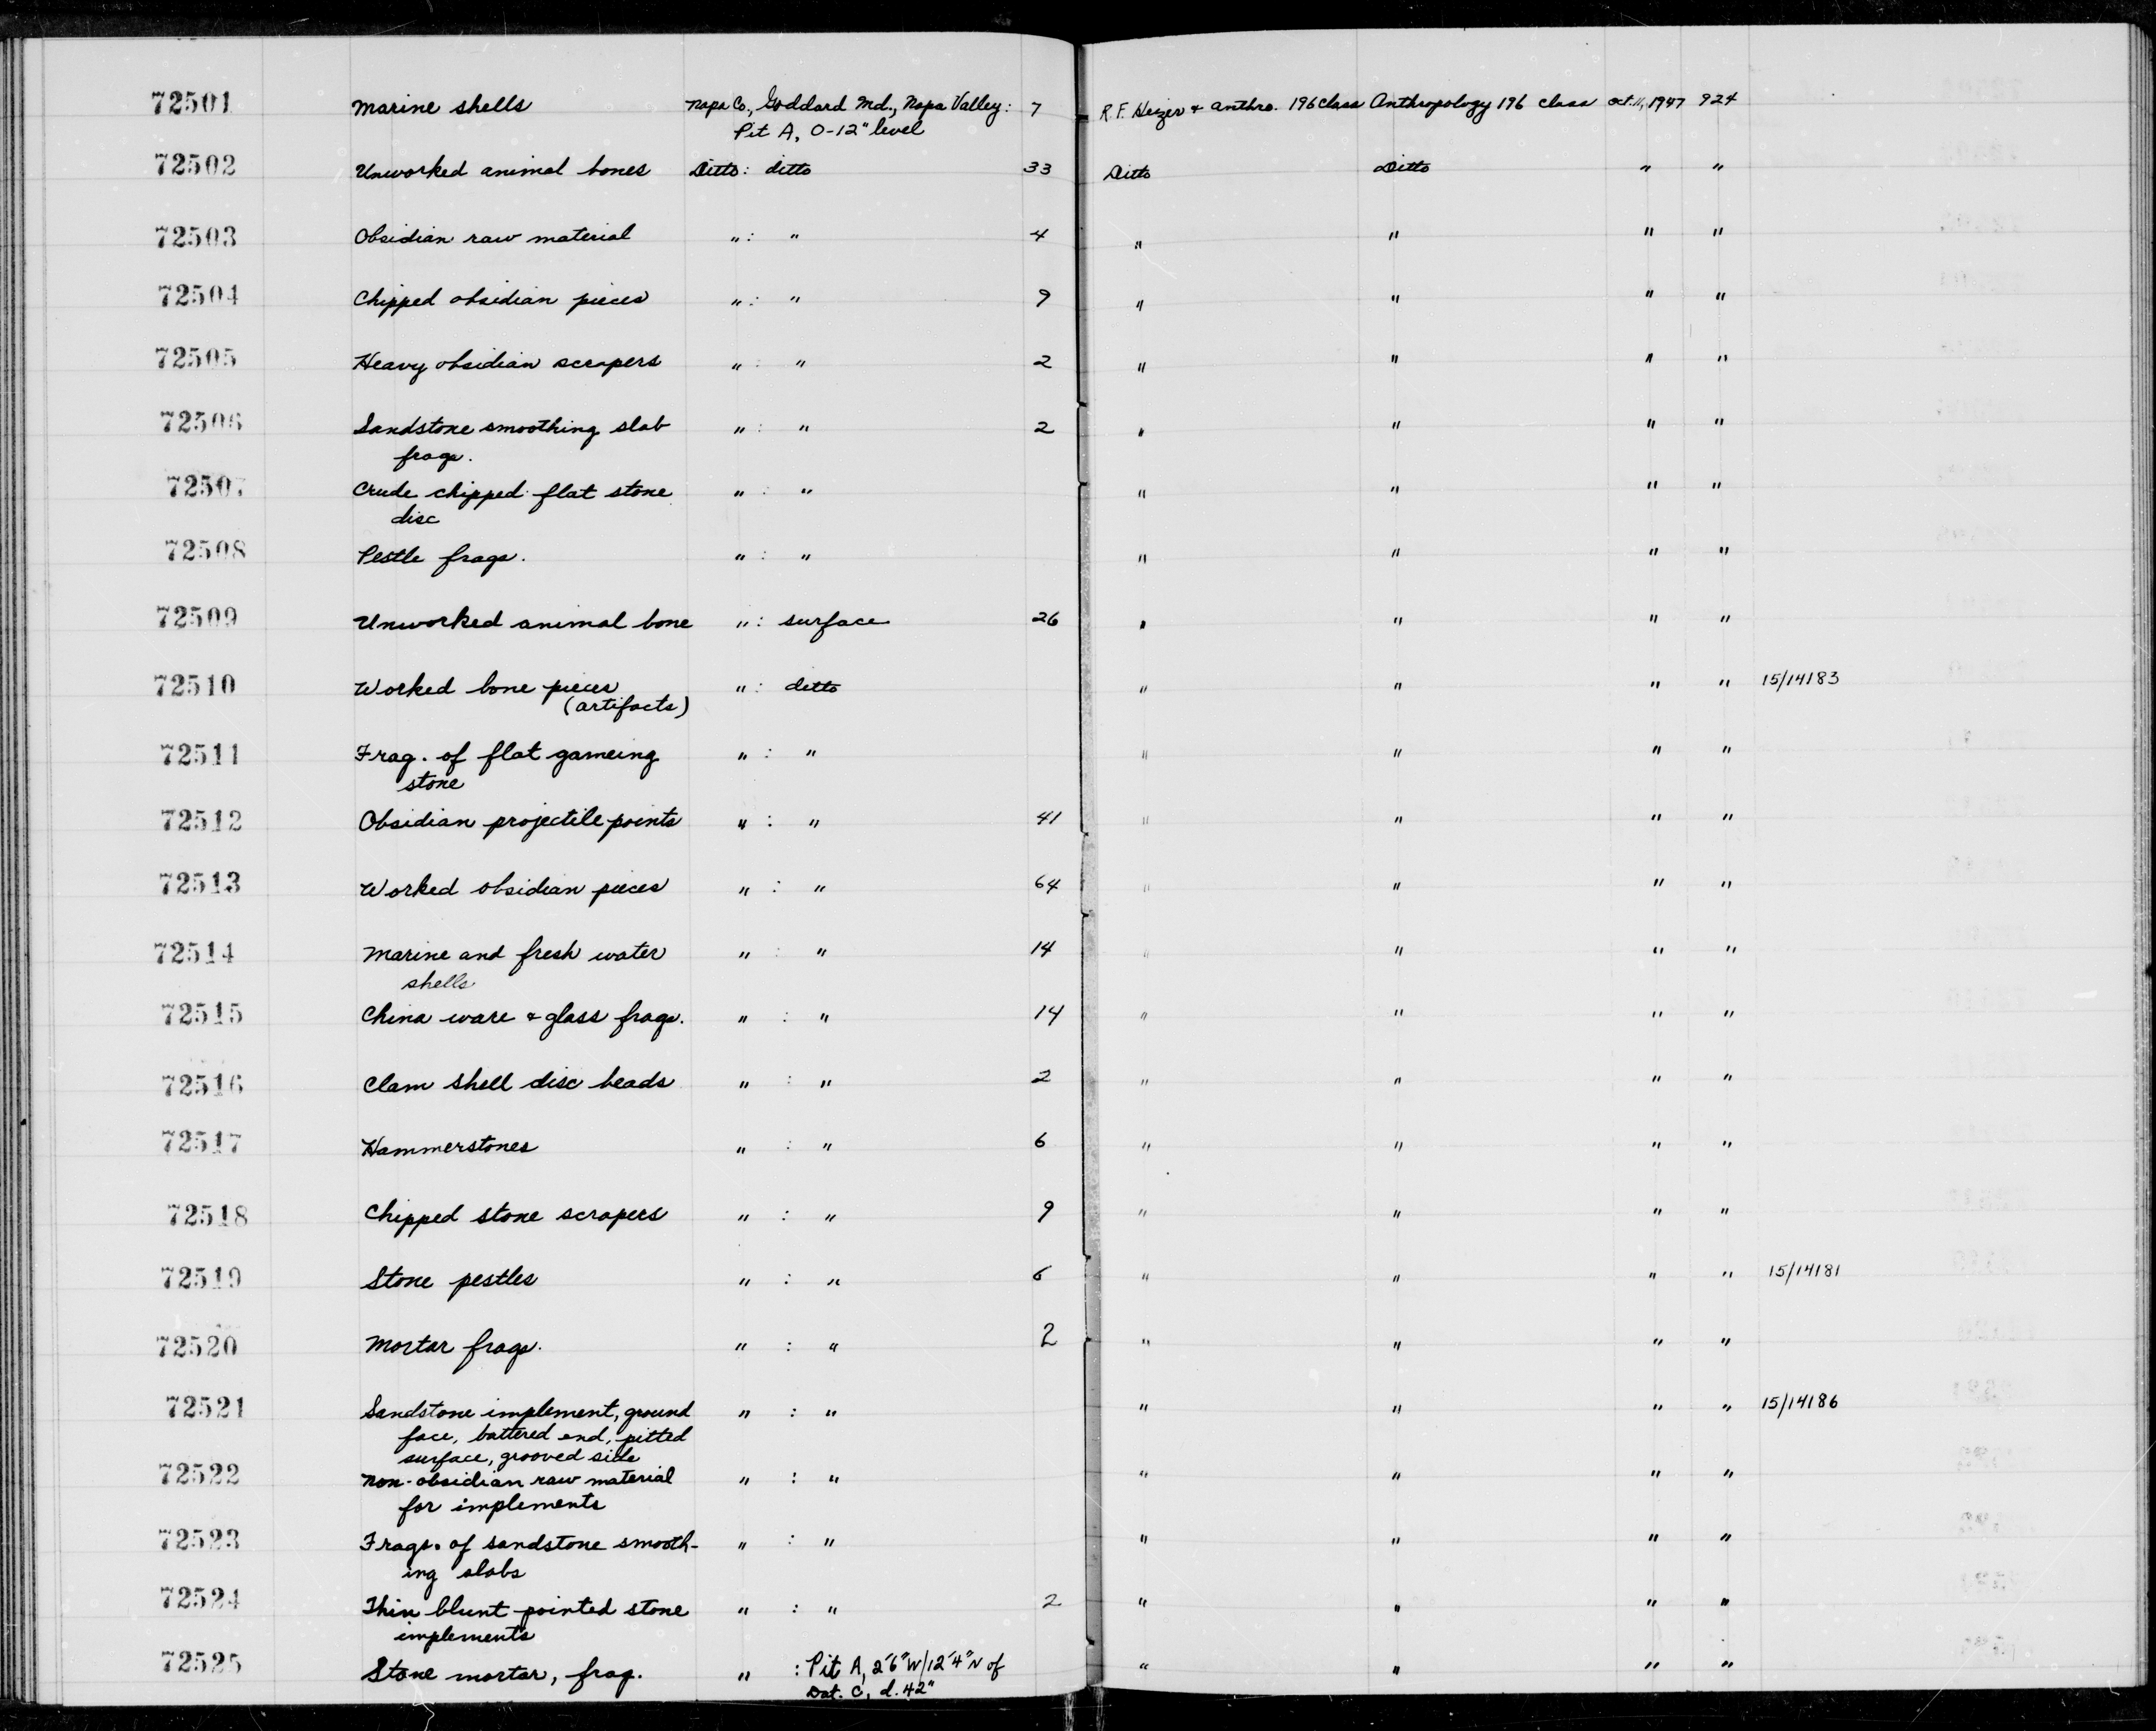 72501 Marine shells Napa Co., Goddard Md., Napa Valley: 7 R.F. Heizer & Anthro. 196 Class Anthropology 196 Class Oct. 11, 1947 924
Pit A, 0-12" level
72502 Unworked animal bones Ditto: ditto 33 Ditto Ditto " "
72503 Obsidian raw material ": " 4 " " " "
72504 Chipped obsidian pieces ": " 9 " " " "
72505 Heavy obsidian scrapers ": " 2 " " " "
72506 Sandstone smoothing slab ": " 2 " " " "
frags.
72507 Crude chipped flat stone ": " " " " "
disc
72508 Pestle frags. ": " " " " "
72509 Unworked animal bone ": surface 26 " " " "
72510 Worked bone pieces ": ditto " " " " 15/14183
(artifacts)
72511 Frag. of flat gameing ": " " " " "
stone
72512 Obsidian projectile points ": " 41 " " " "
72513 Worked obsidian pieces ": " 64 " " " "
72514 Marine and fresh water ": " 14 " " " "
shells
72515 China ware & glass frags. ": " 14 " " " "
72516 Clam shell disc beads ": " 2 " " " "
72517 Hammerstones ": " 6 " " " "
72518 Chipped stone scrapers ": " 9 " " " "
72519 Stone pestles ": " 6 " " " " 15/14181
72520 Mortar frags. ": " 2 " " " "
72521 Sandstone implement, ground ": " " " " " 15/14186
face, battered end, pitted
surface, grooved side
72522 Non-obsidian raw material ": " " " " "
for implements
72523 Frags. of sandstone smooth- ": " " " " "
ing slabs
72524 Thin blunt-pointed stone ": " 2 " " " "
implements
72525 Stone mortar, frag. ": Pit A, 2'6"W/12'4"N of " " " "
Dat. C, d. 42"